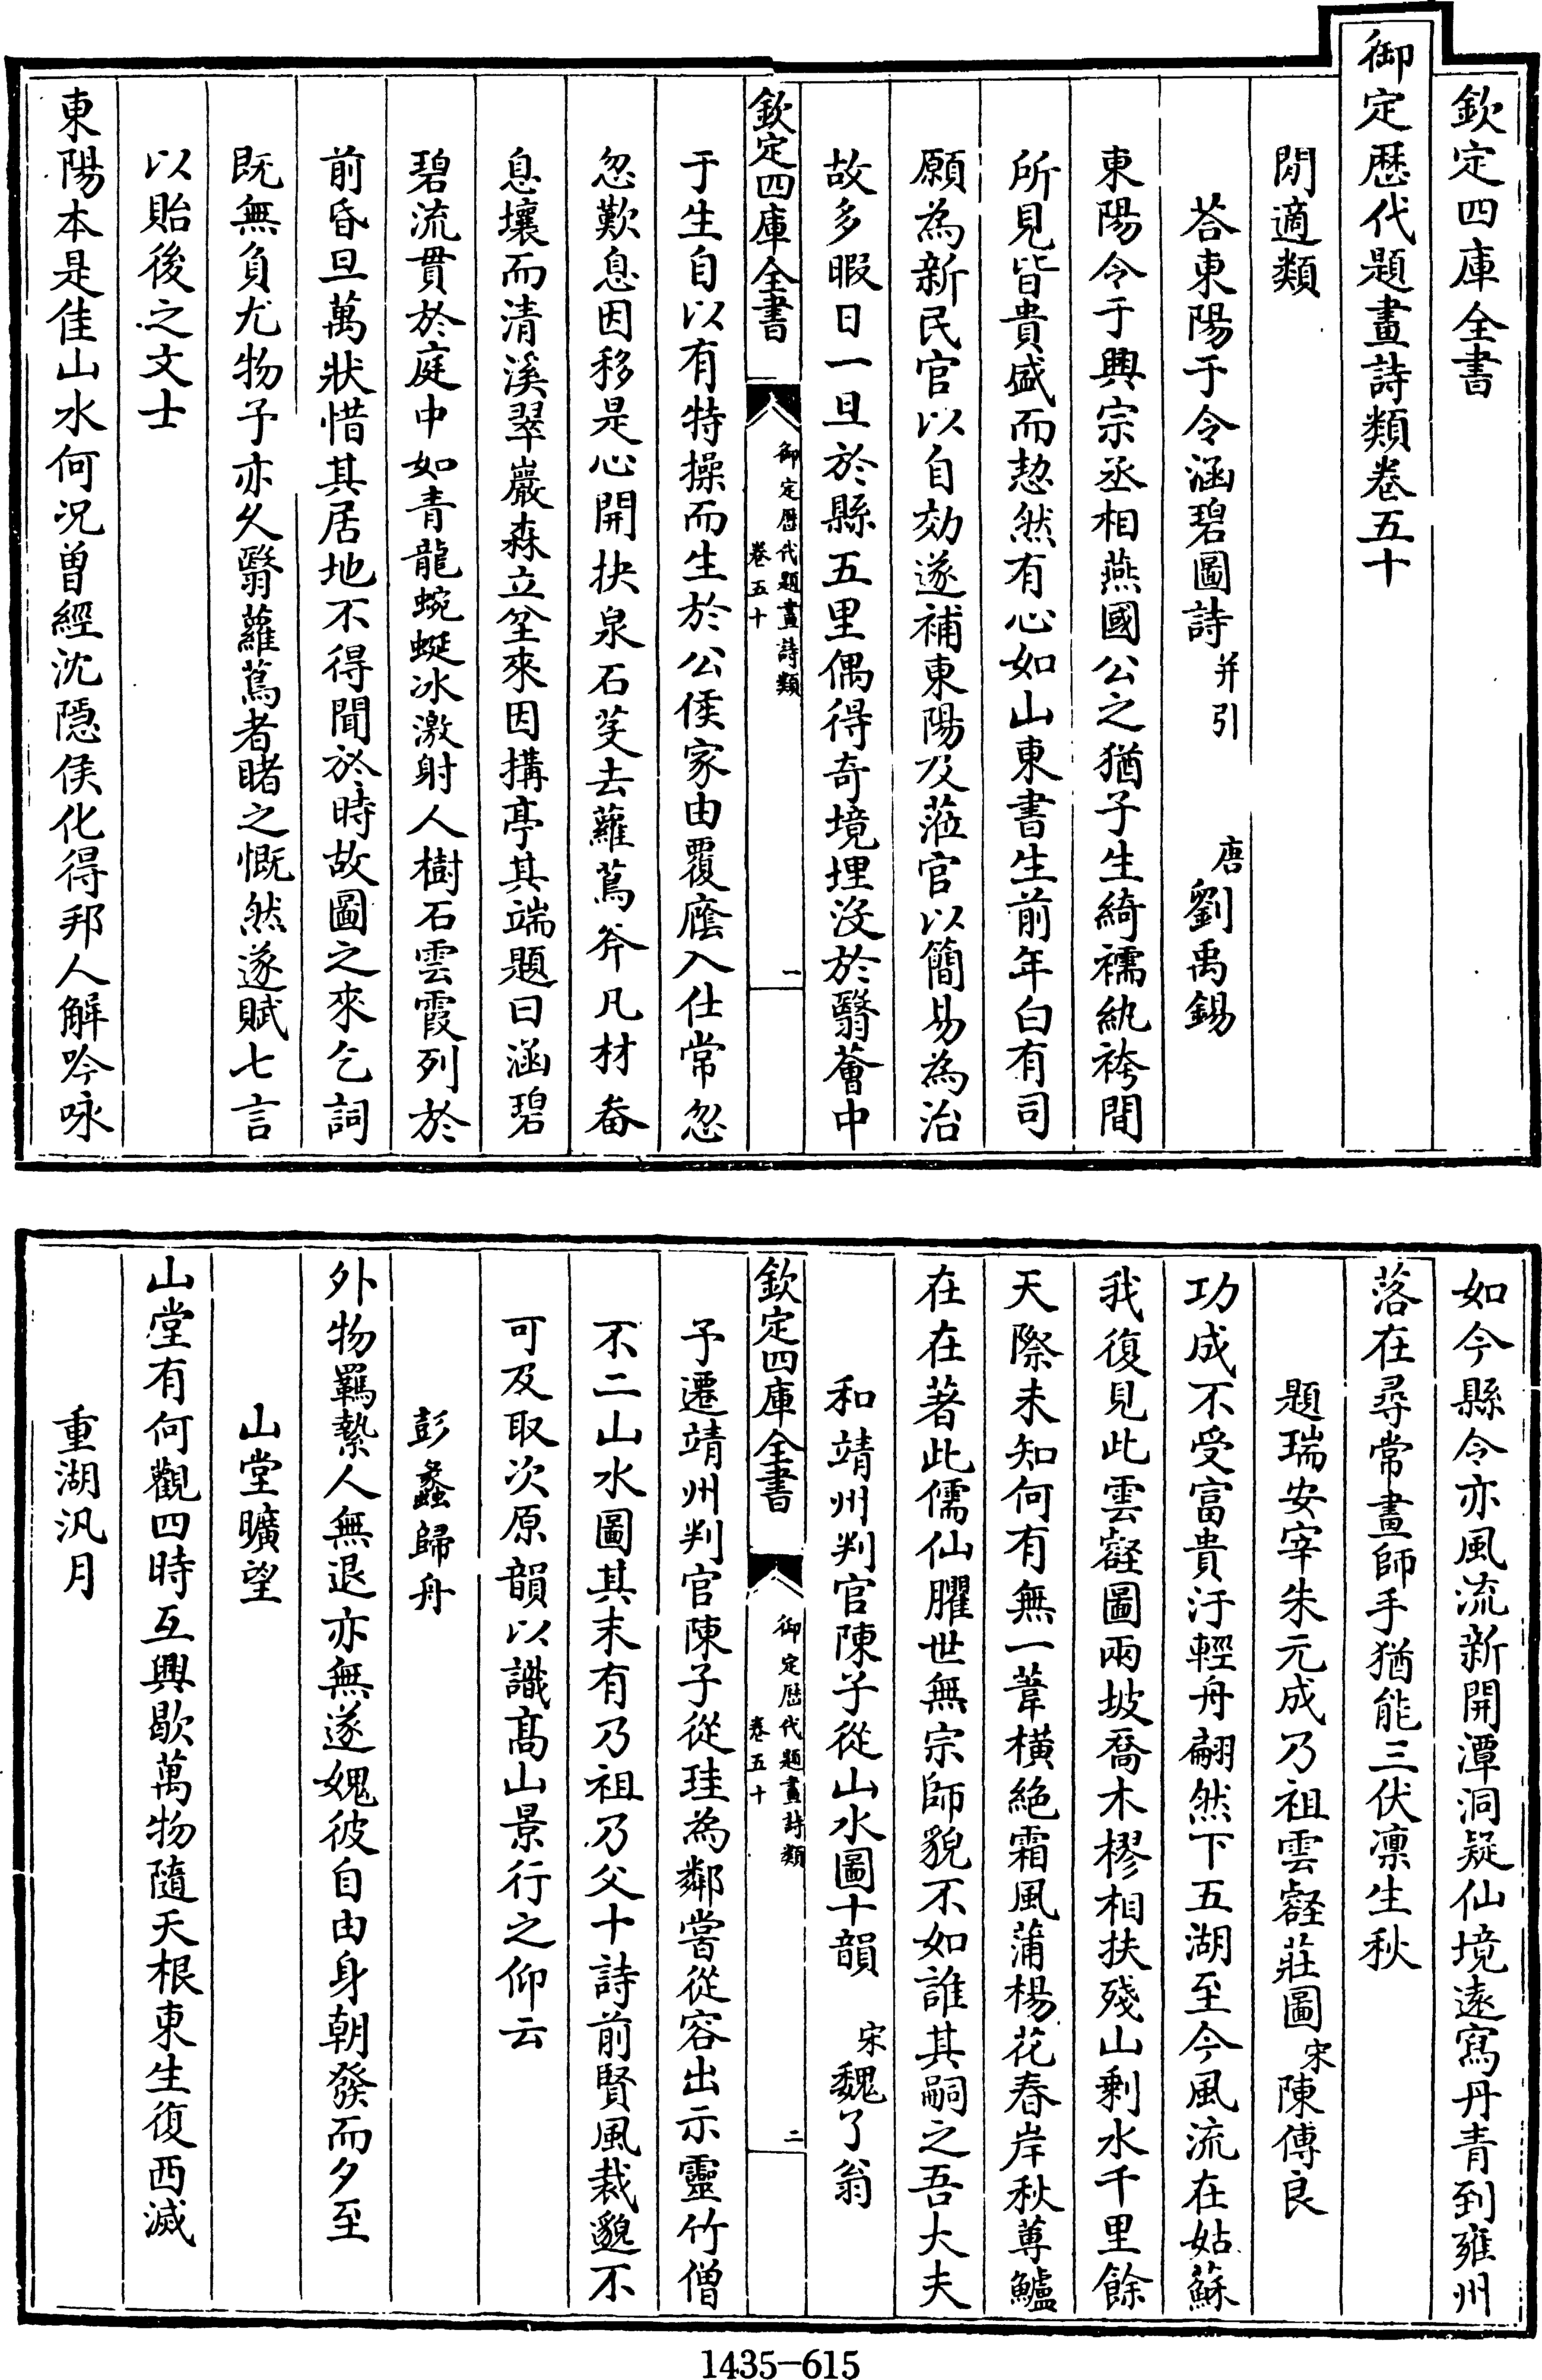 欽定四庫全書
御定歴代題畫詩類卷五十
閒適類
荅東陽于令涵碧圖詩并引 唐劉禹錫
東陽令于興宗丞相燕國公之猶子生綺襦紈袴間
所見皆貴盛而恝然有心如山東書生前年白有司
願為新民官以自効遂補東陽及蒞官以簡易為治
故多暇日一旦於縣五里偶得奇境埋沒於翳薈中
欽定四庫全書 御定歴代題畫詩類 卷五十 一
于生自以有特操而生於公侯家由覆廕入仕常忽
忽歎息因移是心開抉泉石芟去蘿蔦斧凡材畚
息壤而清溪翠巖森立坌來因搆亭其端題曰涵碧
碧流貫於庭中如青龍蜿蜒冰激射人樹石雲霞列於
前昏旦萬狀惜其居地不得聞於時故圖之來乞詞
既無負尤物予亦久翳蘿蔦者睹之慨然遂賦七言
以貽後之文士
東陽本是佳山水何況曽經沈隱侯化得邦人解吟咏
如今縣令亦風流新開潭洞疑仙境逺寫丹青到雍州
落在尋常畫師手猶能三伏凛生秋
題瑞安宰朱元成乃祖雲壑莊圖 宋陳傅良
功成不受富貴汙輕舟翩然下五湖至今風流在姑蘇
我復見此雲壑圖兩坡喬木樛相扶殘山剰水千里餘
天際未知何有無一葦橫絶霜風蒲楊花春岸秋蓴鱸
在在著此儒仙臞世無宗師貌不如誰其嗣之吾大夫
和靖州判官陳子從山水圖十韻 宋魏了翁
欽定四庫全書 御定歴代題畫詩類 卷五十 二
予遷靖州判官陳子從珪為鄰嘗從容出示靈竹僧
不二山水圖其末有乃祖乃父十詩前賢風裁邈不
可及取次原韻以識髙山景行之仰云
彭蠡歸舟
外物羈縶人無退亦無遂媿彼自由身朝發而夕至
山堂曠望
山堂有何觀四時互興歇萬物隨天根東生復西滅
重湖汎月
1435-615